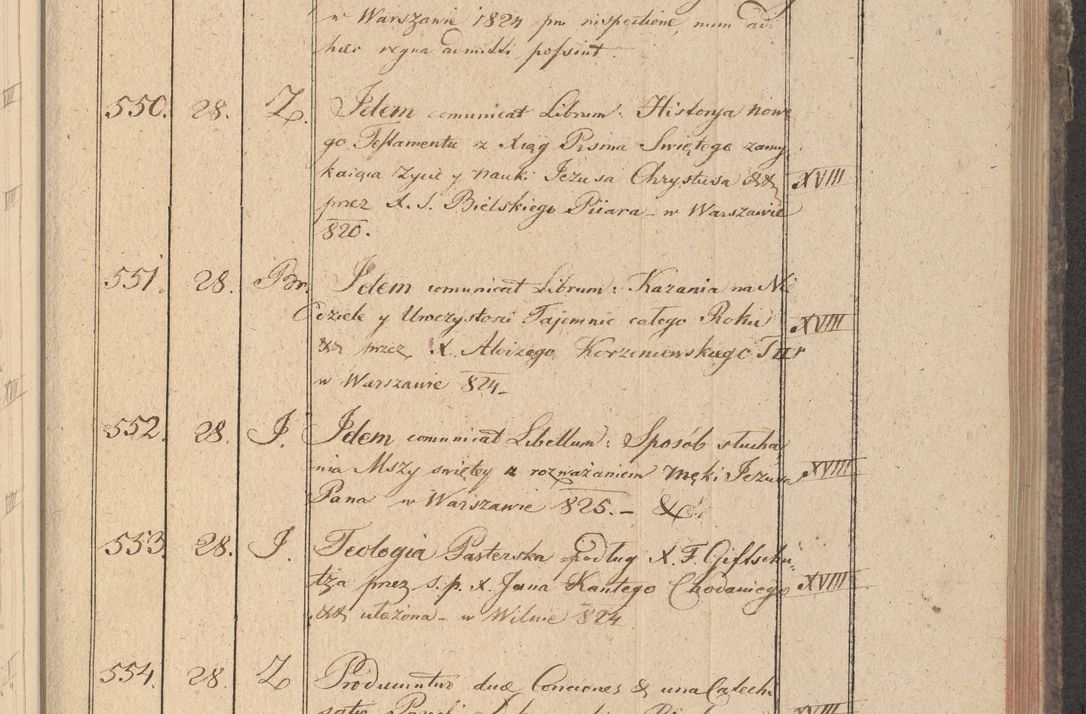 w Warszawie 1824 pro inspectione, num ad
huc regna admitti possint.
550. 28. Z. Idem comunicat Librum: Historya nowe
go Testamentu z Xiąg Pisma Swiętego zamy
kaiąca życie y nauki Jezusa Chrystusa && XVIII
przez X. S. Bielskiego Piiara - w Warszawie
820.
551. 28. Br. Idem comunicat Librum: Kazania na Nie
dziele y Uroczystosci Tajemnic całego Roku XVIII
&& przez X. Aloizego Korzeniewskiego
w Warszawie 824.-
552. 28. J. Idem comunicat Libellum: Sposób słucha
nia Mszy swiętey z rozważaniem męki Jezusa XVIII
Pana w Warszawie 825. - &
553 28. J. Teologia Pasterska podług X. F. Giftschü
tza przez s. p. X. Jana Kantego Chodaniego XVIII
&& ułożona - w Wilnie 824
554. 28. Z Producuntur duæ Conciones & una Catechi
XVIII